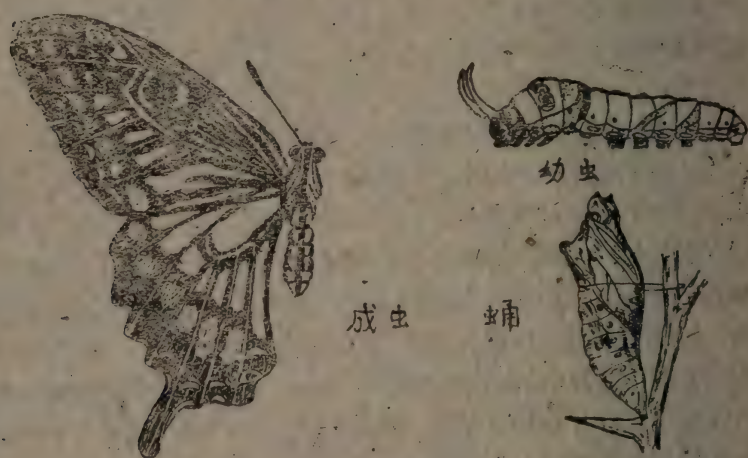 幼虫
成虫
蛹